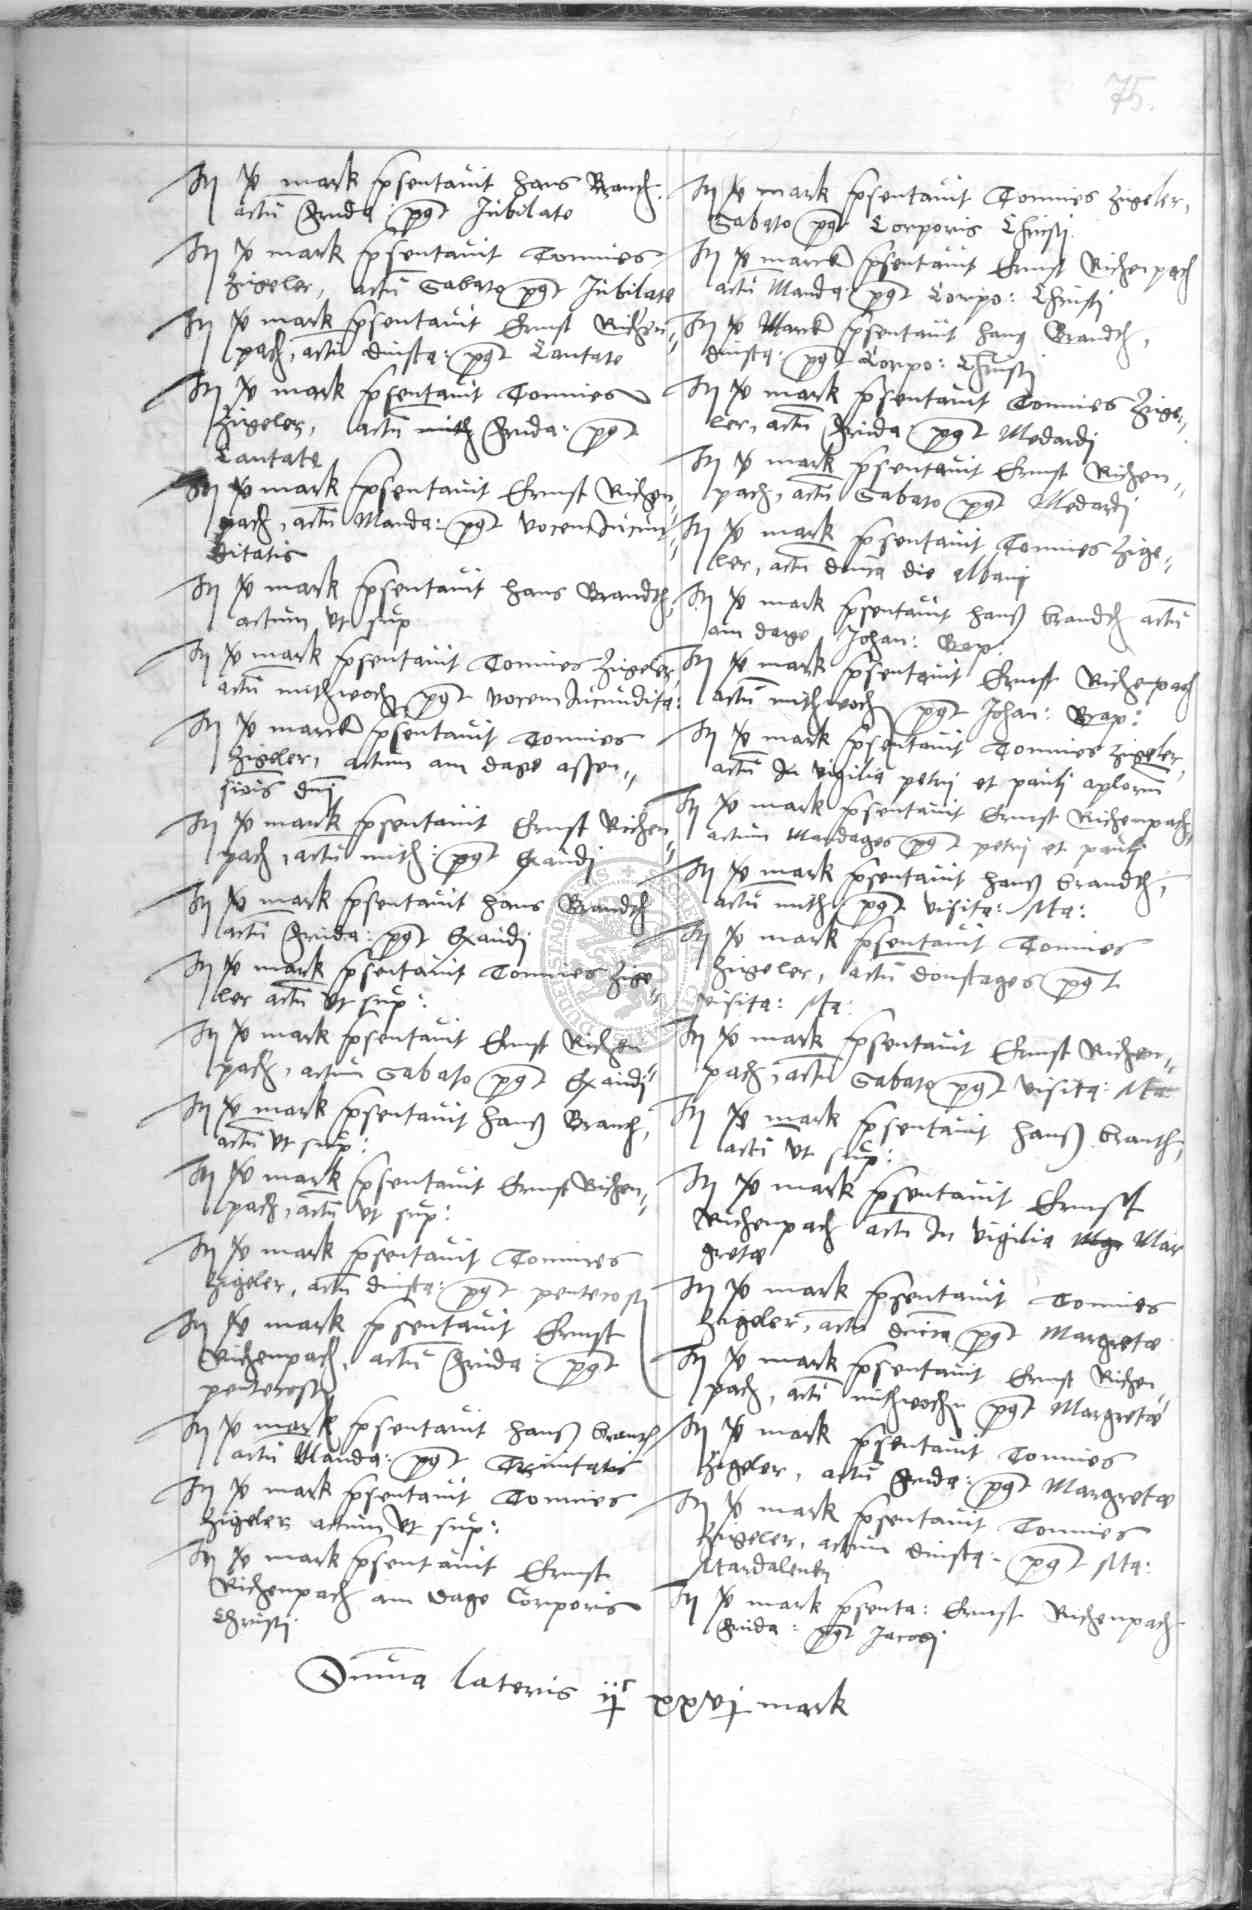 75.
Itz vj mark psentavit hans Branth.
actu frida: pqt Jubilate
Itz vj mark psentavit Tonnies
Zigeler, actu Sabato pqt Jubilate
Itz vj mark psentavit Ernst Richen„
pach, actu dinsta: pqt Cantate
Itz vj mark psentavit Tonnies
Zigeler, actu frida: pqt
Cantate
Itz vj mark psentavit Ernst Richen„
pach, actu Manda: pqt vocem Jucun„
ditatis
Itz vj mark psentavit hans Brandth,
actum ut sup
Itz vj mark psentavit Tonnies Zigeler,
actu mithwoch pqt vocem Jucundita:
Itz vj marck psentavit Tonnies
Zigeler, actum am dage assen„
siois dni
Itz vj mark psentavit Ernst Richen„
pach, actu mith: pqt Exaudj
Itz vj mark psentavit hans Brandth
actu frida: pqt Exaudj
Itz vj mark psentavit Tonnies Zige„
ler actu ut sup:
Itz vj mark psentavit Ernst Richen„
pach, actum Sabato pqt Exaudj
Itz vj mark psentavit hanß Branth,
actu ut sup:
Itz vj mark psentavit Ernst Richen„
pach, actu ut sup:
Itz vj mark psentavit Tonnies
Zigeler, actu dinsta: pqt pentecost
Itz vj mark psentavit Ernst
Richenpach, actu frida: pqt
pentecost
Itz vj mark psentavit hanß branth
actu Manda: pqt Trinitatis
Itz vj mark psentavit Tonnies
Zigeler actum ut sup:
Itz vj mark psentavit Ernst
Richenpach am dage Corporis
Christi
Itz vj mark psentavit Tonnies Zigeler,
Sabato pqt Corporis Christi
Itz vj marck psentavit Ernst Richenpach
actu Manda: pqt Corpo: Christj
Itz vj Marck psentavit hanß Brandth,
dinsta: pqt Corpo: Christj
Itz vj mark psentavit Tonnies Zige„
ler, actu frida pqt Medardj
Itz vj mark psentavit Ernst Richen„
pach, actu Sabato pqt Medardj
Itz vj mark psentavit Tonnies Zige„
ler, actu dnica die Albanj
Itz vj mark psentavit hanß brandth actu
am dage Johan: Bap:
Itz vj mark psentavit Ernst Richenpach
actu mithwoch pqt Johan: Bap:
Itz vj mark psentavit Tonnies Zigeler,
actu In vigilia petrj et pauli aplorum
Itz vj mark psentavit Ernst Richenpach„
actum Mandages pqt petrj et pauli
Itz vj mark psentavit hanß brandth,
actu mith pqt visita: Ma:
Itz vj mark psentavit Tonnies
Zigeler, actu donstages pqt
visita: Ma:
Itz vj mark psentavit Ernst Richen„
pach, actu Sabato pqt visita: Ma
Itz vj mark psentavit hanß branth,
actu ut sup:
Itz vj mark psentavit Ernst
Richenpach actu In vigilia Mar
gretae
Itz vj mark psentavit Tonnies
Zigeler, actu dnica pqt Margretae
Itz vj mark psentavit Ernst Richen„
pach, actu mithwochn pqt Margretae
Itz vj mark psentavit Tonnies
Zigeler, actu frida: pqt Margretae
Itz vj mark psentavit Tonnies
Zigeler, actum dinsta: pqt Ma:
Mardalenen
Itz vj mark psenta: Ernst Richenpach
frida: pqt Jacobj
Suma lateris ijc xxvj mark